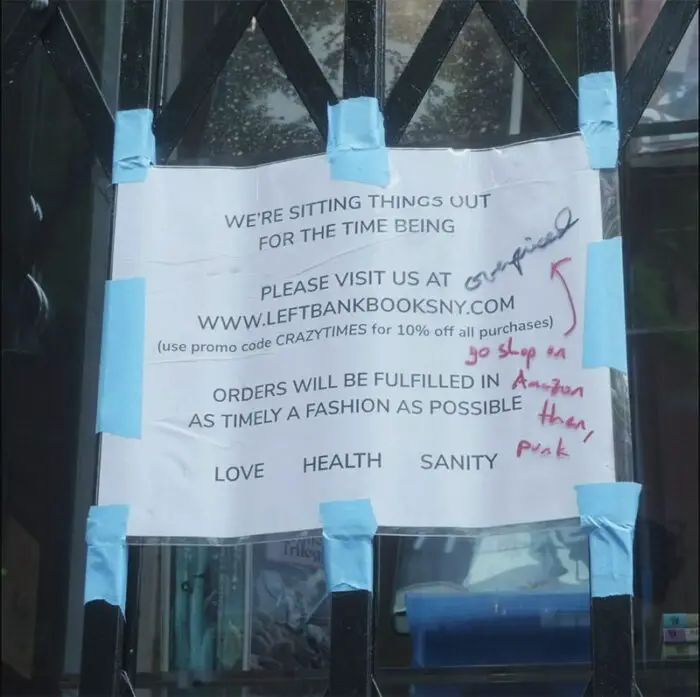 WE'RE SITTING THINGS OUT
FOR THE TIME BEING
overpriced
PLEASE VISIT US AT
WWW.LEFTBANKBOOKSNY.COM
(use promo code CRAZYTIMES for 10% off all purchases)
go shop on
Amazon
then,
punk
ORDERS WILL BE FULFILLED IN
AS TIMELY A FASHION AS POSSIBLE
LOVE HEALTH SANITY